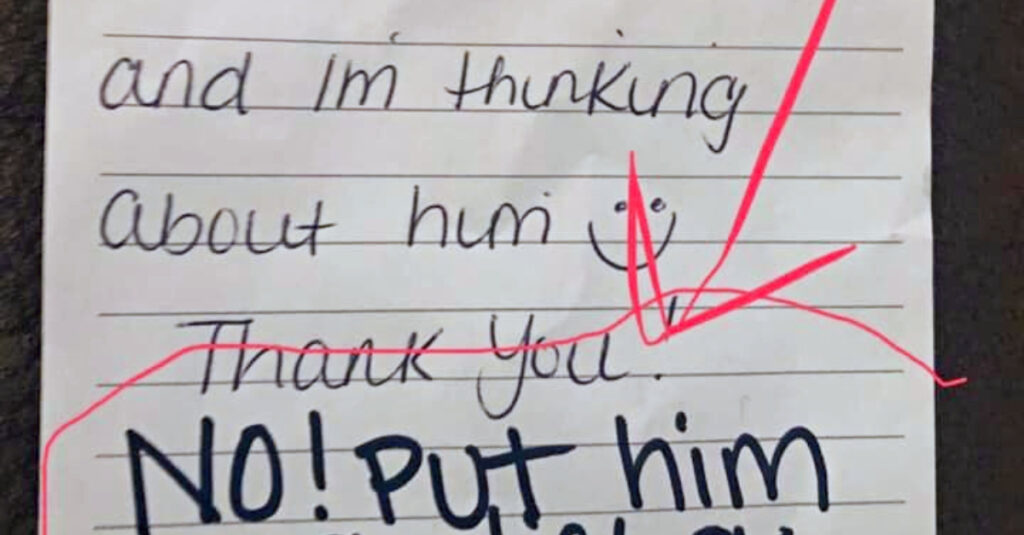 and im thinking
about him
Thank you.
NO! Put him